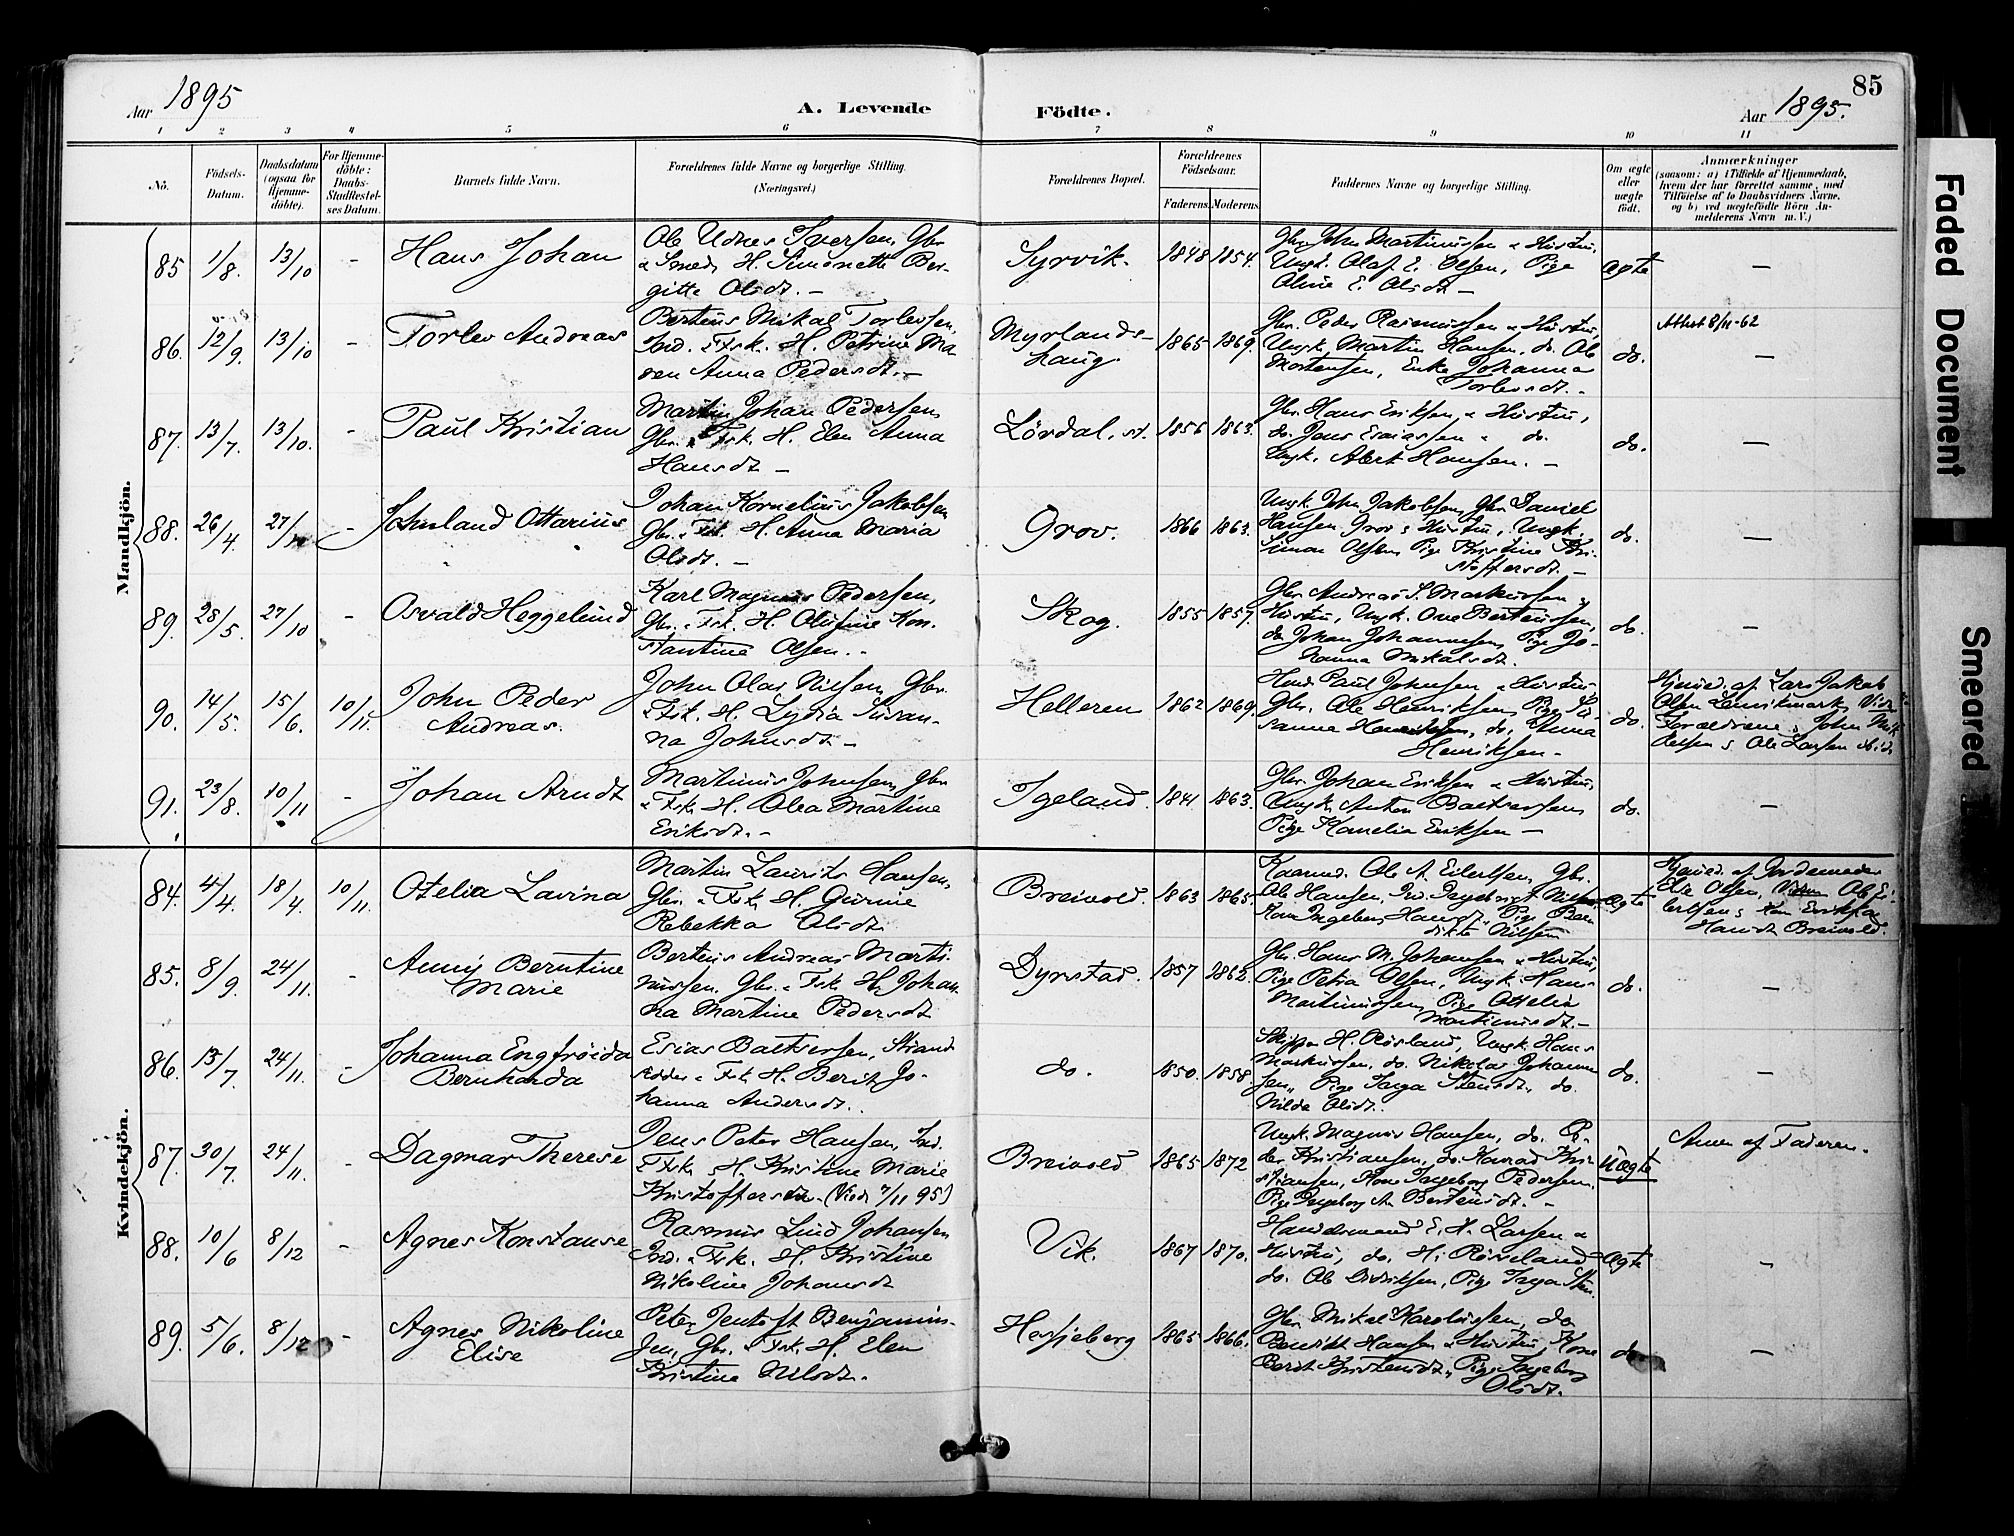 85
Aar 1895
A. Levende
Födte.
Aar 1895.
1 2 3 4 5 6 7 8 9 10 11
No.
Födsels-
Datum.
Daabsdatum
(ogsaa for
Hjemme-
döbte).
For Hjemme-
döbte:
Daabs-
Stadfæstel-
ses Datum.
Barnets fulde Navn.
Forældrenes fulde Navne og borgerlige Stilling.
(Næringsvei.)
Forældrenes Bopæl.
Forældrenes
Födselsaar.
Faderens. Moderens.
Faddernes Navne og borgerlige Stilling.
Om ægte
eller
uægte
födt.
Anmærkninger
(saasom: a) i Tilfælde af Hjemmedaab,
hvem der har forrettet samme, med
Tilföielse af to Daabsvidners Navne,
og b) ved uægtefödte Börn An-
melderens Navn m. V.)
Mandkjön.
85 1/8. 13/10 - Hans Johan
Ole Udnes Iversen, Gbr.
& Smed, H. Simonette Ber-
gitte Olsdt. -
Syrvik. 1848 1854.
Gbr. John Martinussen & Hustru,
Ungk. Olaf E. Olsen, Pige
Oline E. Olsdt -
ægte -
86. 12/9. 13/10 - Torlev Andreas
Berteus Mikal Torlevsen,
Ind. & Fsk. H. Petrine Ma
ren Anna Pedersdt. -
Myrlands-
haug 1865 1869.
Gbr. Peder Rasmussen & Hustru,
Ungk. Martin Hansen, do. Ole
Mortensen, Enke Johanna
Torlevsdt. -
do. Attest 8/11-62
-
87. 13/7. 13/10. - Paul Kristian
Martin Johan Pedersen,
Gbr. & Fsk. H. Elen Anna
Hansdt -
Lördal, st. 1856 1863.
Gbr. Hans Eriksen, & Hustru,
do. Jens Esaiassen & do.
Ungk. Albert Hansen. -
do. -
88. 26/4. 27/10 - Ottarius
Johan Kornelius Jakobsen
Gbr. & Fsk. H. Anna Maria
Olsdt. -
Grov. 1866 1863.
Ungk. John Jakobsen, Gbr. Daniel
Hansen Grov & Hustru, Ungk.
Simon Olsen, Pige Kristine Kri-
stoffersdt. -
do. -
89. 28/5. 27/10 - Osvald Heggelund
Karl Magnus Pedersen,
Gbr. & Fsk. H. Olufine Kon-
stantine Olsen. -
Skog. 1855 1857.
Gbr. Andreas S. Markussen &
Hustru, Ungk. Ove Berteussen,
do Johan Johannesen, Pige Jo-
hanna Mikalsdt.
do. -
90. 14/5. 15/6. 10/11. John Peder
Andreas.
John Olai Nilsen, Gbr.
& Fsk. H. Lydia Susan-
na Johnsdt -
Helleren 1862 1869.
Paul Johnsen & Hustru,
Gbr. Ole Henriksen, Pige Su-
sanna do. Anna
Henriksen -
do. Hjemmed. af Lars Jakob
Olsen Vidn
Forældrene, John Mik
kelsen & Ole Larsen ibid.
91. 23/8. 10/11 - Johan Arndt
Martinus Johnsen, Gbr.
& Fsk. H. Olea Martine
Eriksdt. -
Igeland. 1841 1863.
Gbr. Johan Eriksen & Hustru,
Ungk. Anton Baltsersen,
Pige Kanelia Eriksen -
do. -
Kvindekjön.
84. 4/4. 18/4. 10/11. Otelia Lavina
Martin Laurits Hansen,
Gbr. & Fsk. H. Gurine
Rebekka Olsdt.
Breivold. 1863 1865.
Kaarmd. Ole A. Eilertsen, Gbr.
Ole Hansen, Ind. Ingebrigt Nilsen
Kone Ingeborg Hansdt. Pige Bene
dikte Nilsen
ægte Hjemmed. af Jordemoder
Elie Olsen, Vidner Ole Ei-
lertsen & Kone Erikka
Hansdt Breivold.
85. 8/9. 24/11. - Anny Berntine
Marie
Berteus Andreas Marti-
nussen, Gbr. & Fsk. H. Johan
na Martine Pedersdt
Dyrstad. 1857 1862.
Gbr. Hans M. Johansen & Hustru,
Pige Petra Olsen, Ungk. Hans
Martinussen, Pige Ottelia
Martinusdt. -
do. -
86. 13/7. 24/11. - Johanna Engfröida
Bernharda
Esias Baltsersen, Strand
sidder & Fsk. H. Berit Jo-
hanna Andersdt. -
do. 1850. 1858.
Skipper H. Risland, Ungk. Hans
Markussen, do. Nikolai Johannes
sen, Pige Inga Stensdt, do.
Hilda Olsdt.
do. -
87. 30/7. 24/11. - Dagmar Therese
Jens Peter Hansen, Ind.
& Fsk. H. Kristine Marie
Kristoffersdt. (Viet 7/11 95)
Breivold 1865 1872
Ungk. Magnus Hansen, do. Pe-
der Kristiansen, do. Konrad Kri-
stiansen, Kone Ingeborg Pedersen,
Pige Ingeborg A. Berteusdt. -
Uægte Anm. af Faderen.
88. 10/6 8/12 - Agnes Konstanse
Rasmus Lind Johansen
Ind. & Fsk. H. Kristine
Nikoline Johansdt
Vik. 1867 1870.
Handelsmand E. H. Larsen &
Hustru, do. H. Röisland
do. Ole Didriksen, Pige Inga Sten.
ægte -
89. 5/6. 8/12 - Agnes Nikoline
Elise
Peter Jentoft Benjamin-
sen, Gbr. & Fsk. H. Elen
Kristine Nilsdt.
Hesjeberg 1865 1866.
Gbr. Mikal Karolussen, do
Benedikt Hansen & Hustru, Kone
Berit Kristensdt., Pige Ingeborg
Olsdt.
do -
Faded Document
Smeared